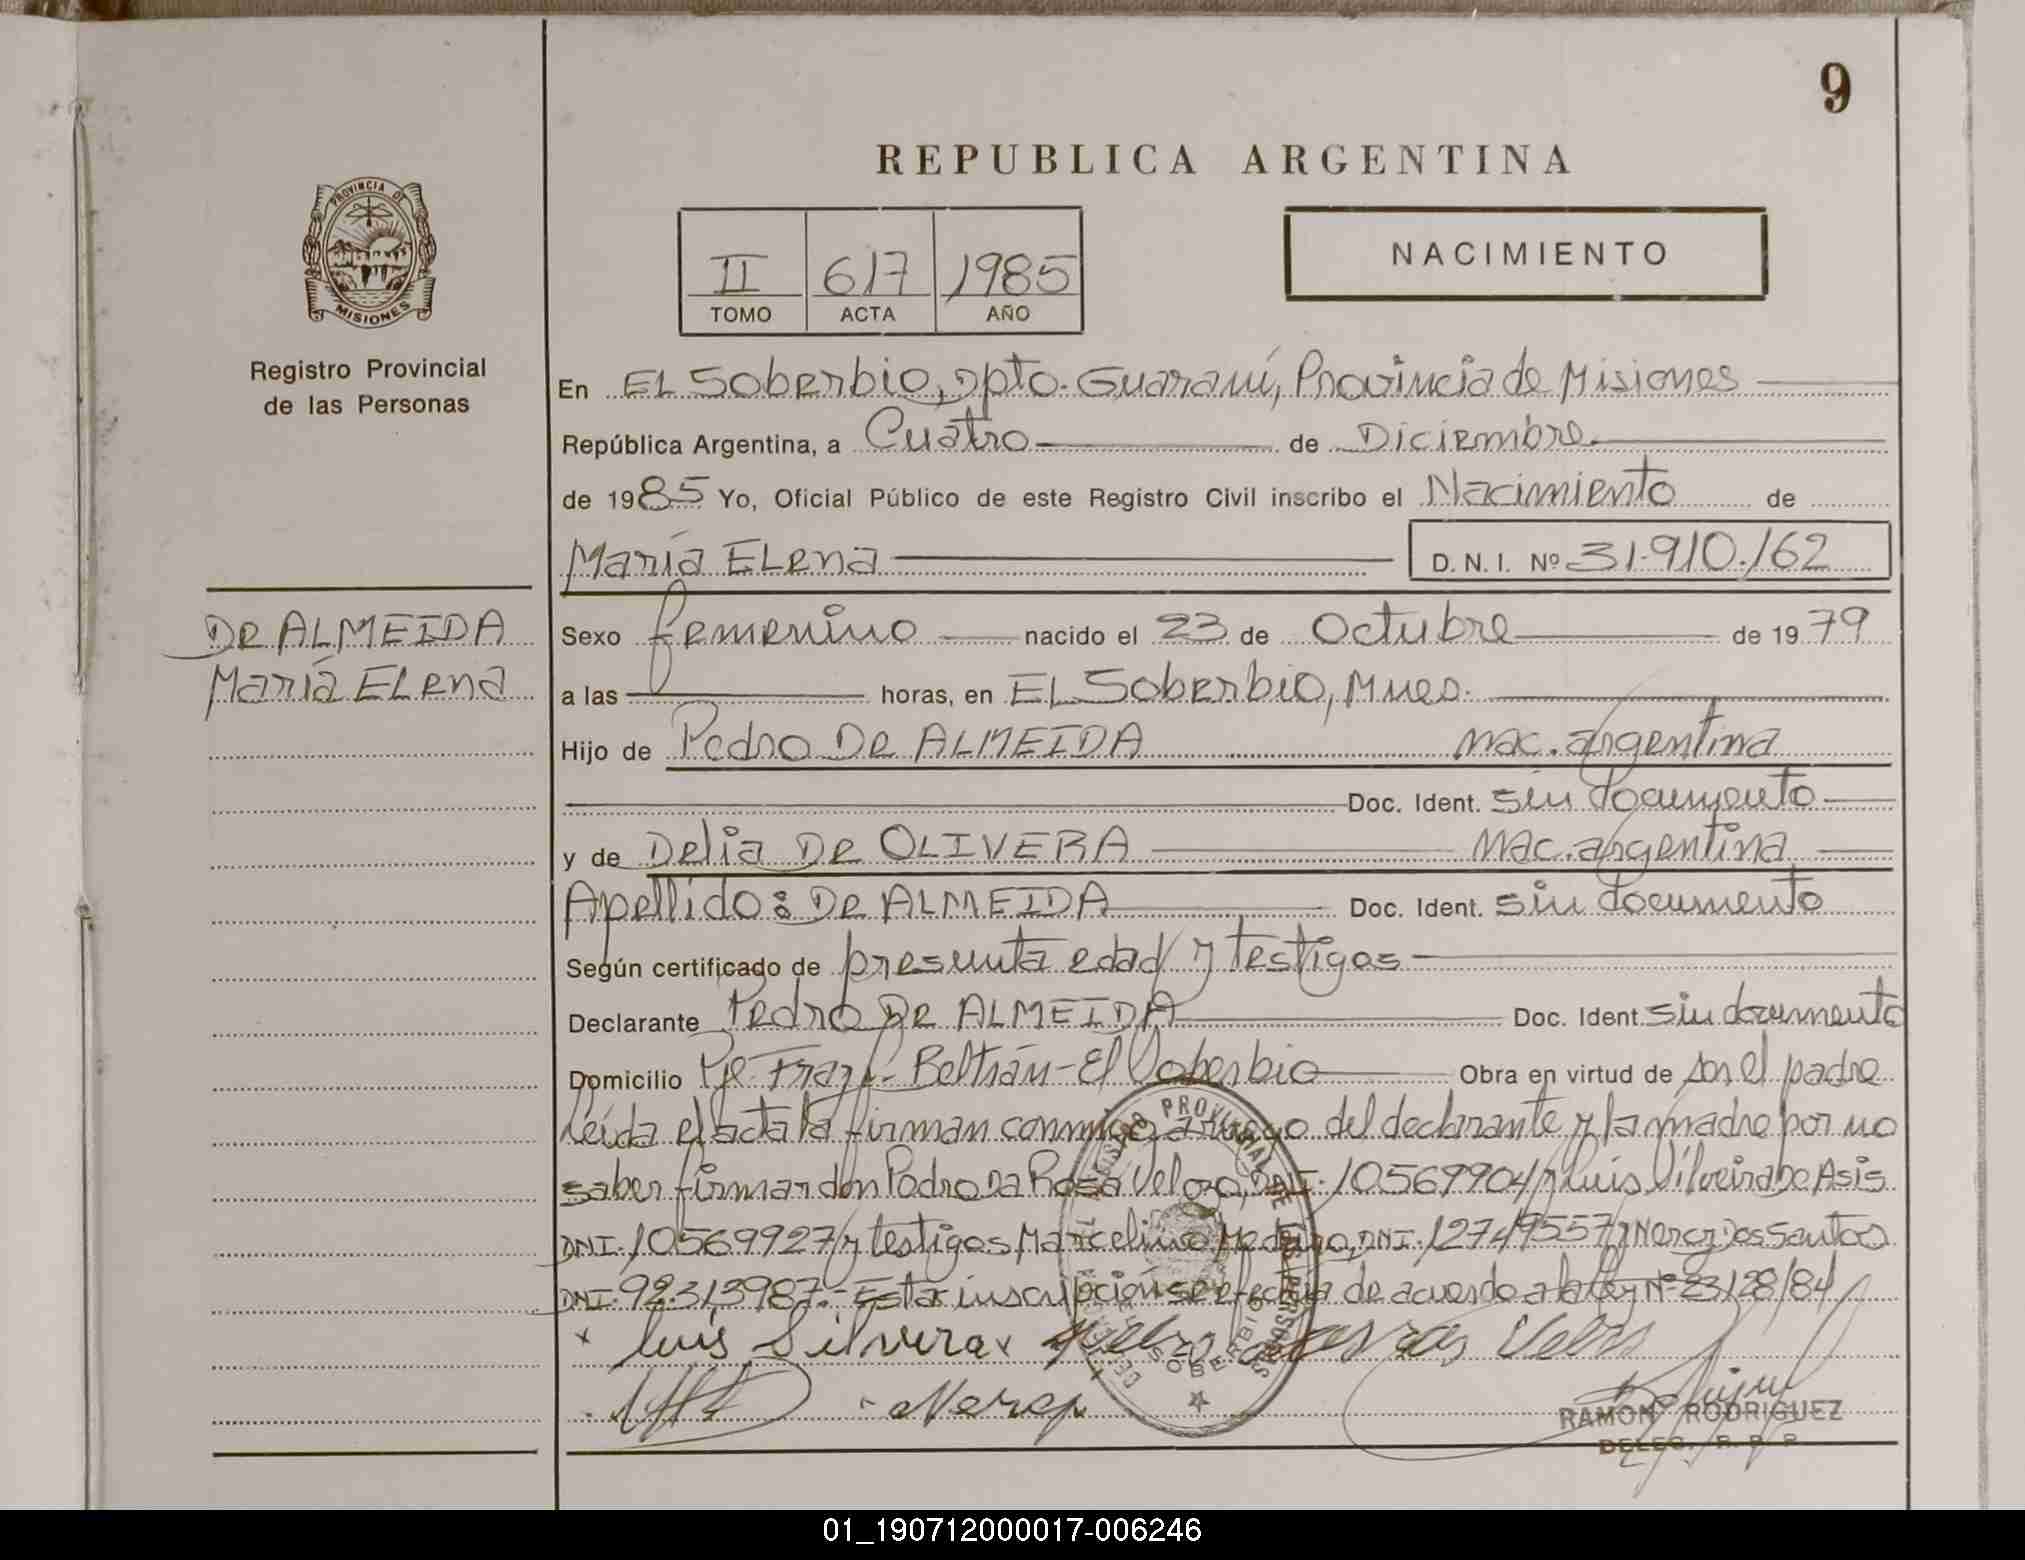 9
REPUBLICA ARGENTINA
PROVINCIA DE
MISIONES
II 617 1985
TOMO ACTA AÑO
NACIMIENTO
Registro Provincial
de las Personas
En EL Soberbio, Dpto. Guaraní, Provincia de Misiones
República Argentina, a Cuatro de Diciembre
de 1985 Yo, Oficial Público de este Registro Civil inscribo el Nacimiento de
María ELena D. N. I. Nº 31.910.162
DE ALMEIDA
María ELena
Sexo femenino nacido el 23 de Octubre de 1979
a las horas, en EL Soberbio, Mnes.
Hijo de Pedro De ALMEIDA nac. argentina
Doc. Ident. sin documento
y de Delia De OLIVERA nac. argentina
Apellido: De ALMEIDA Doc. Ident. sin documento
Según certificado de presunta edad y testigos
Declarante Pedro De ALMEIDA Doc. Ident. sin documento
Domicilio Beltrán - El Soberbio Obra en virtud de ser el padre
Leída el acta la firman conmigo, a ruego del declarante y la madre por no
saber firmar don Pedro Da Rosa Velozo, DNI. 10569904 y Luis Silveira De Asis
DNI. 10569927 y testigos Marcelino DNI. 12749557 y Dos Santos
DNI. 92.313987.- Esta inscripción se efectúa de acuerdo a la ley Nº 23128/84
x Luis Silvera x
RAMON RODRIGUEZ
DELEG. R. P. P.
01_190712000017-006246